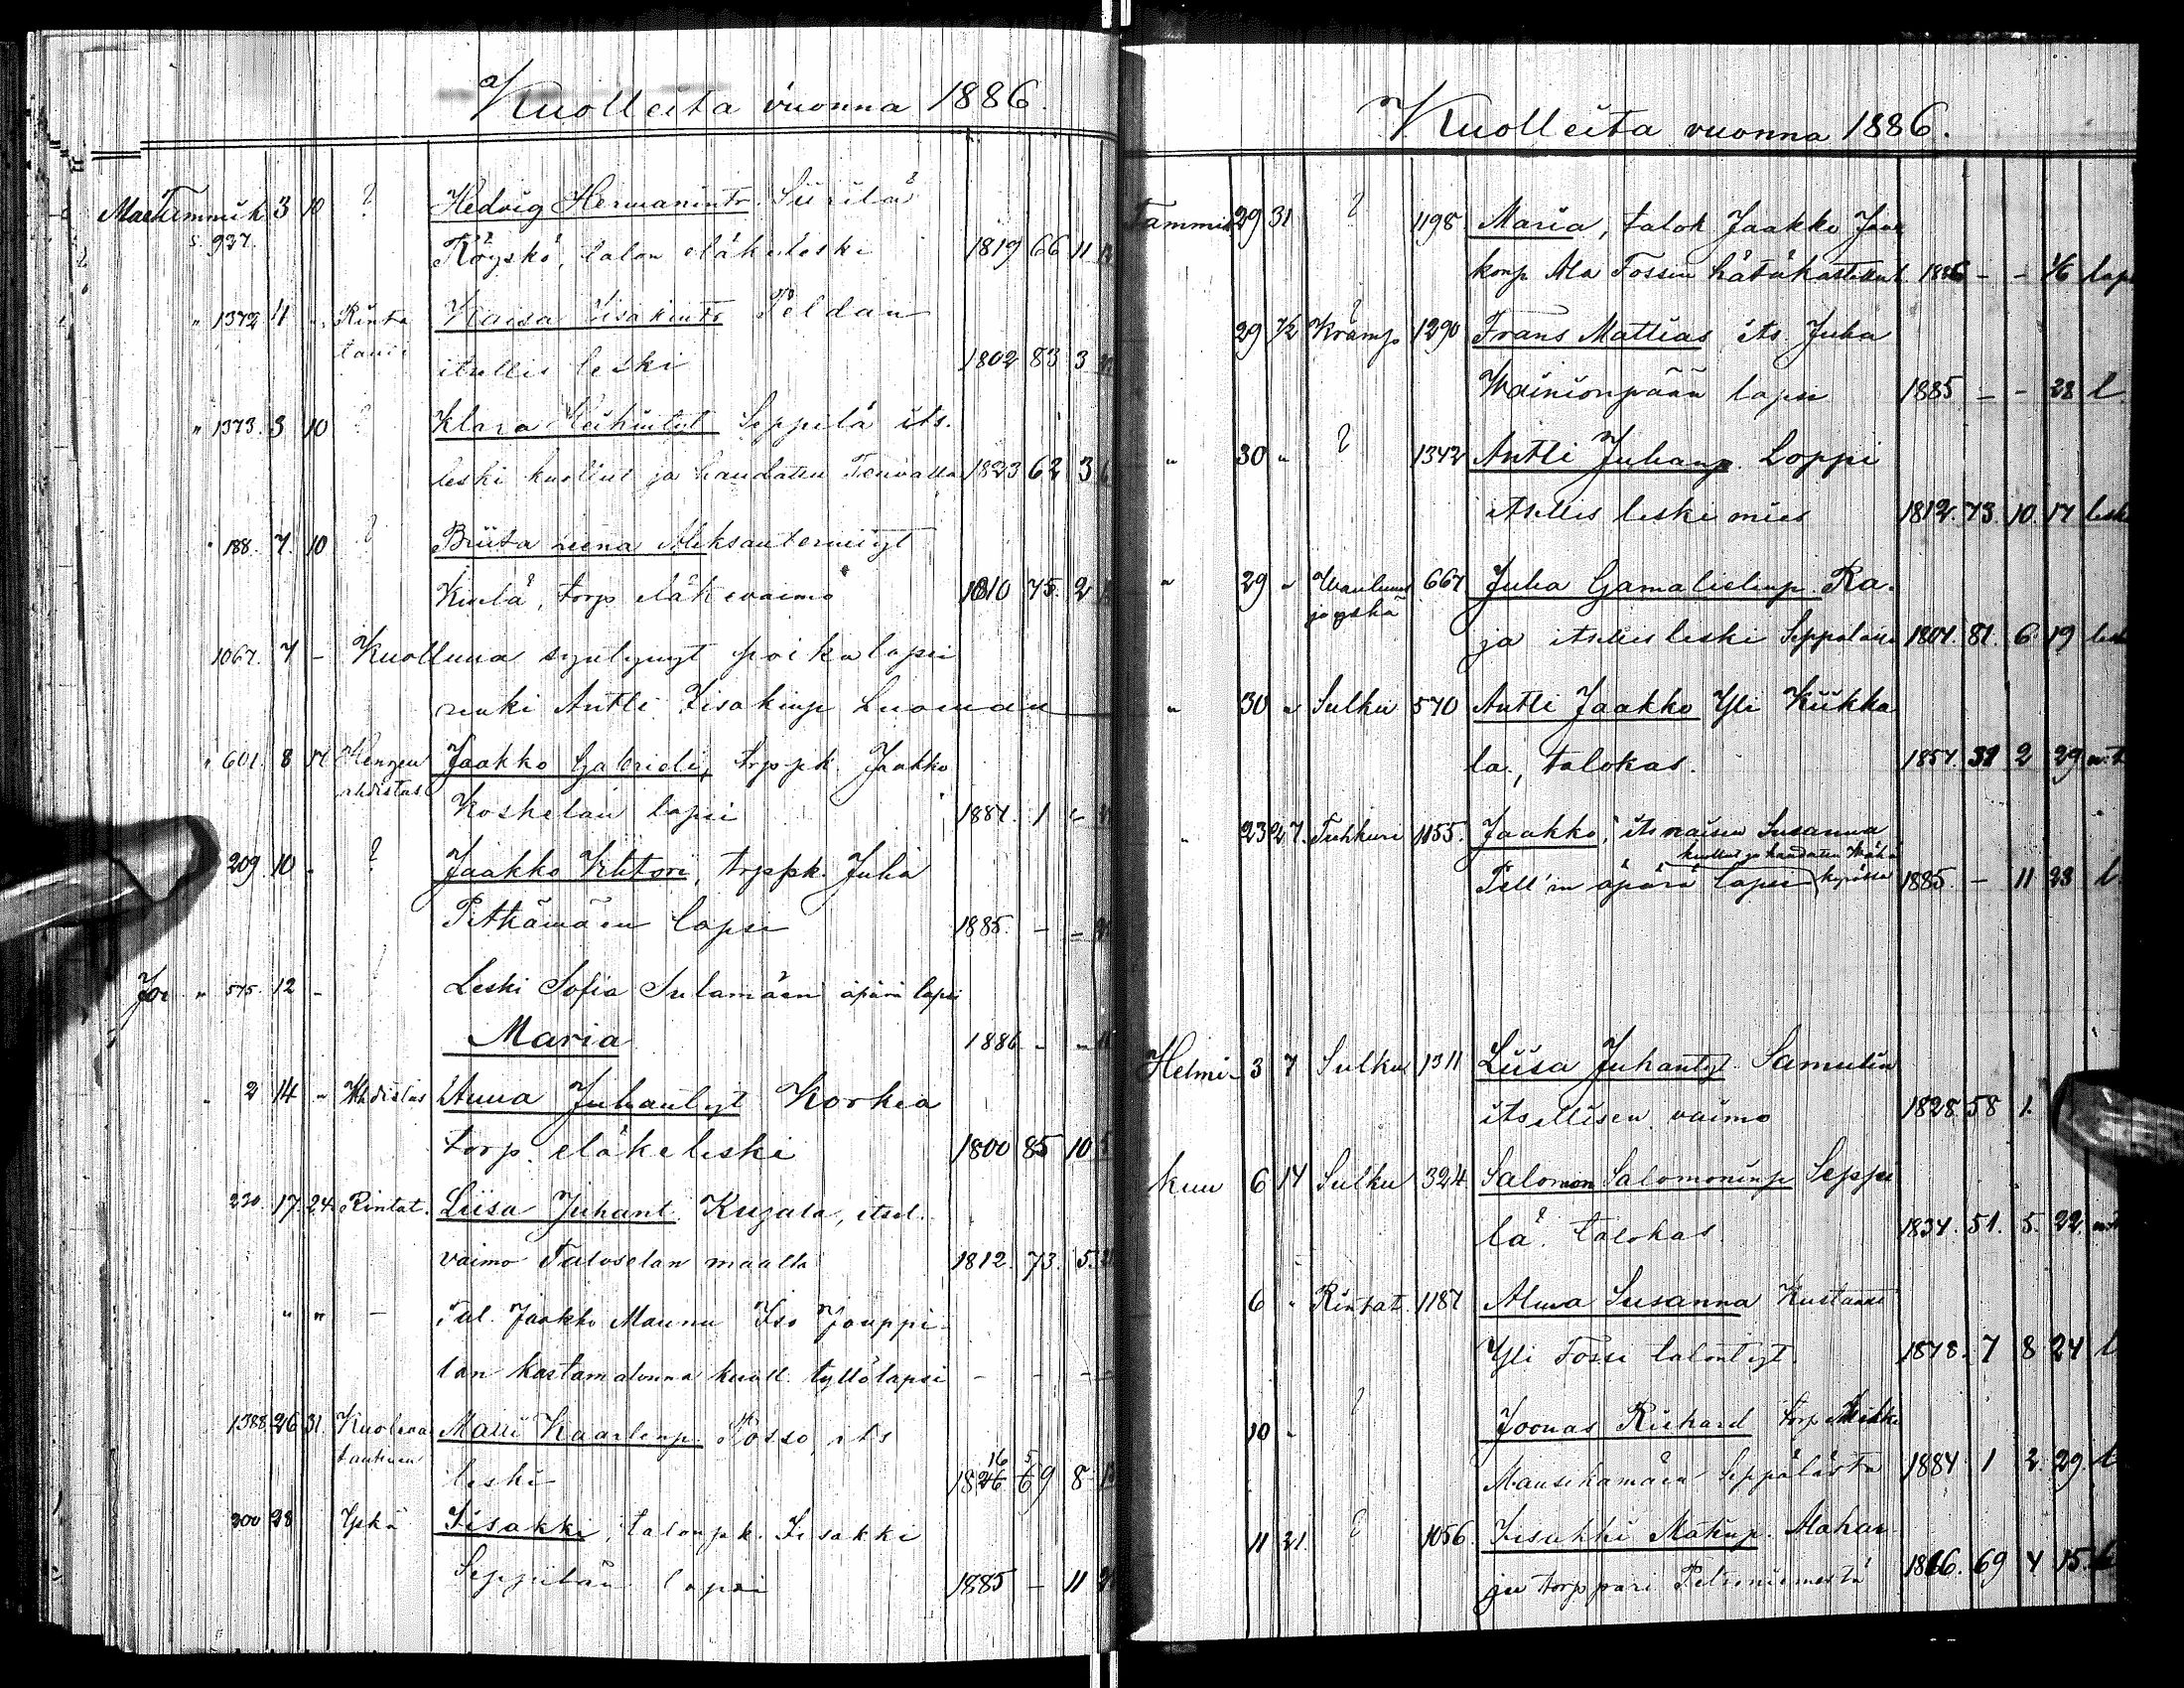 Kuolleita vuonna 1886.
Tammik 3 10 ? Hedvig Hermanintr. Siirilä
s. 937. Köyskö, talon eläkeleski 1819 66 11
" 1372 4 " Rinta Kaisa Iisakintr Peldan
tauti itsellis leski 1802 83 3
" 1373. 3 10 ? Klara Seppilä its.
leski kuollut ja haudattu 1823 62 3
" 188. 7. 10 ? Briita Leena
torp. eläkevaimo 1810 75. 2
1067. 7 - Kuolluna syntynyt poikalapsi
renki Antti Iisakinp Luoman
" 601. 8 17 Hengen Jaakko Gabrieli, trppk. Jaakko
ahdistus Koskelan lapsi 1884. 1
209. 10 ? Jaakko Vihtori, trppk. Juha
Pitkämäen lapsi 1885. - -
" 515. 12 - Leski Sofia Sulamäen äpärä lapsi
Maria 1886 - "
2 14 " Ahdistus Anna Juhantyt Korkea
torp. eläkeleski 1800 85 10
230. 17. 24. Rintat. Liisa Juhant. Kujala, itsel.
vaimo maalta 1812. 73. 5.
" " - Tal. Jaakko Maunu Iso Jouppi-
lan kastamatonna kuoll. tyttölapsi - - -
1388 26 31. Kuoleva Matti Kaarlenp. Rosso, its
tautinen leski 1826 16 69 5 8
200 28 Yskä Iisakki, talonpk. Iisakki
Seppilän lapsi 1885 - 11
Kuolleita vuonna 1886.
Tammik 29 31 ? 1198 Maria, talok Jaakko Jaak
konp Ala Tossun hätäkastettu l. 1886 - - lapsi
29 1/2 Kramp 1290 Frans Mattias its. Juha
Wainionpään lapsi 1885 - - 28 l.
" 30 " ? 1342 Antti Juhanp. Loppi
itsellis leski mies 1812. 73. 10. 17 lesk
" 29 " 667 Juha Gamalielinp. Ra-
ja yskä ja itsellis leski 1804. 81. 6. 19
" 30 " Sulku 570 Antti Jaakko Yli Kiikka
la, talokas. 1854 31 2 29
" 23 27. Tuhkuri 1155. Jaakko, its naisen Susanna
kuollut ja haudattu Wähä
äpärä lapsi kyrössä 1885. - 11 23 l.
Helmi- 3 7 Sulku 1311 Liisa Juhantyt. Samulin
itsellisen vaimo 1828 58 1.
kuu 6 14 Sulku 324 Salomon Salomoninp Seppi
lä talokas. 1834. 51. 5. 22.
6 " Rintat. 1187 Alma Susanna Kustaan
Yli Tossu talontyt. 1878. 7 8 24 l
10 " ? Joonas Richard torp
Mansikamäen Seppälästä 1884 1 2. 29. l
11 21. ? 1056. Iisakki Matinp.
torppari 1816. 69 4 15.